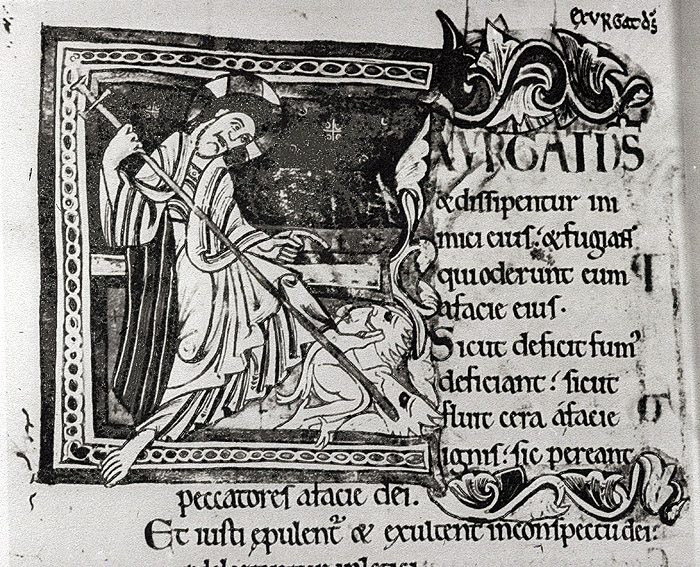 exURGat d͞s
XURGAT DS
& dissipentur ini
mici eius: & fugiant
qui oderunt eum
afacie eius.
Sicut deficit fum᾽
deficiant: sicut
fluit cera afacie
ignis: sic pereant
peccatores afacie dei.
Et iusti ępulent᷑ & exultent inconspectu dei: